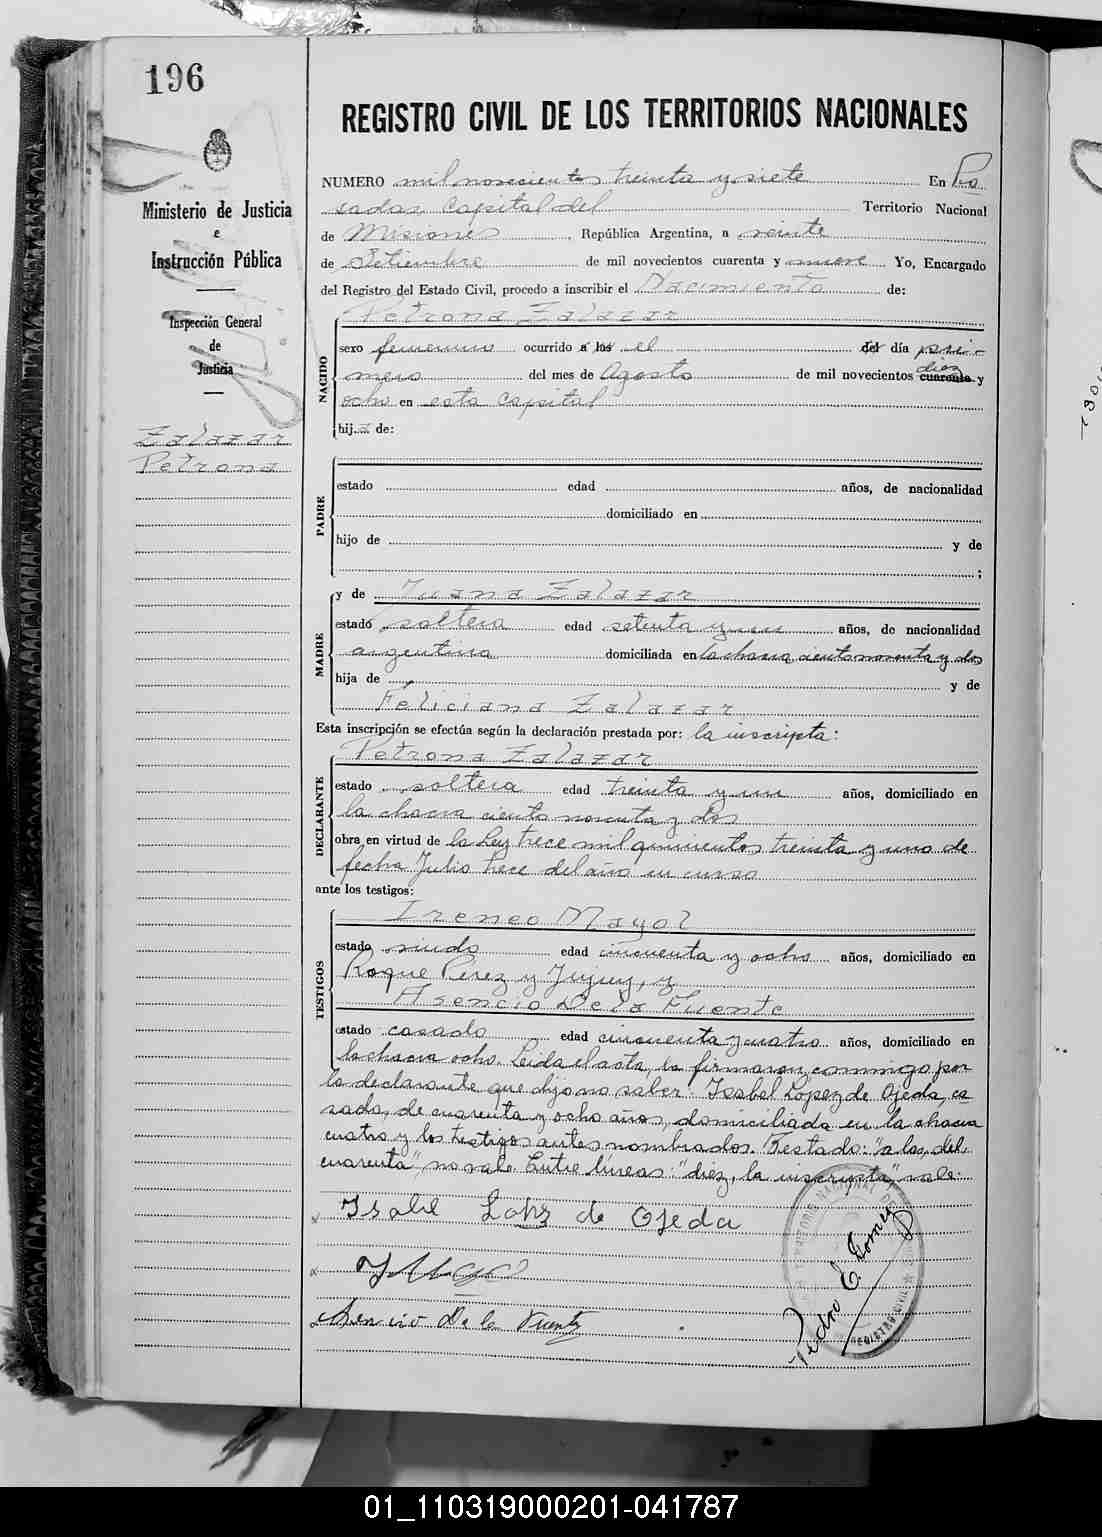 196
REGISTRO CIVIL DE LOS TERRITORIOS NACIONALES
Ministerio de Justicia
e
Instrucción Pública
Inspección General
de
Justicia
Zalazar
Petrona
NUMERO mil novecientos treinta y siete En Po
sadas Capital del Territorio Nacional
de Misiones, República Argentina, a veinte
de Setiembre de mil novecientos cuarenta y nueve Yo, Encargado
del Registro del Estado Civil, procedo a inscribir el Nacimiento de:
NACIDO
Petrona Zalazar
sexo femenino ocurrido a las el del día pri-
diez
mero del mes de Agosto de mil novecientos cuarenta y
ocho en esta Capital
hij a de:
PADRE
estado edad años, de nacionalidad
domiciliado en
hijo de y de
;
MADRE
y de Juana Zalazar
estado soltera edad setenta y un años, de nacionalidad
argentina domiciliada en la chacra ciento noventa y dos
hija de y de
Feliciana Zalazar
Esta inscripción se efectúa según la declaración prestada por: la inscripta:
DECLARANTE
Petrona Zalazar
estado soltera edad treinta y un años, domiciliado en
la chacra ciento noventa y dos
obra en virtud de la Ley trece mil quinientos treinta y uno de
fecha Julio trece del año en curso
ante los testigos:
TESTIGOS
Ireneo Mayol
estado viudo edad cincuenta y ocho años, domiciliado en
Roque Perez y Jujuy, y
Asencio De la Fuente
estado casado edad cincuenta y cuatro años, domiciliado en
la chacra ocho. Leida el acta, la firmaron conmigo por
la declarante que dijo no saber: Isabel Lopez de Ojeda, ca
sada, de cuarenta y ocho años, domiciliada en la chacra
cuatro y los testigos antes nombrados. Testado: "a las, del,
cuarenta", no vale. Entre líneas: "diez, la inscripta", vale.
Isabel Lopez de Ojeda
Asencio De la Fuente
Pedro E. Gomez
REGISTRO CIVIL
01_110319000201-041787